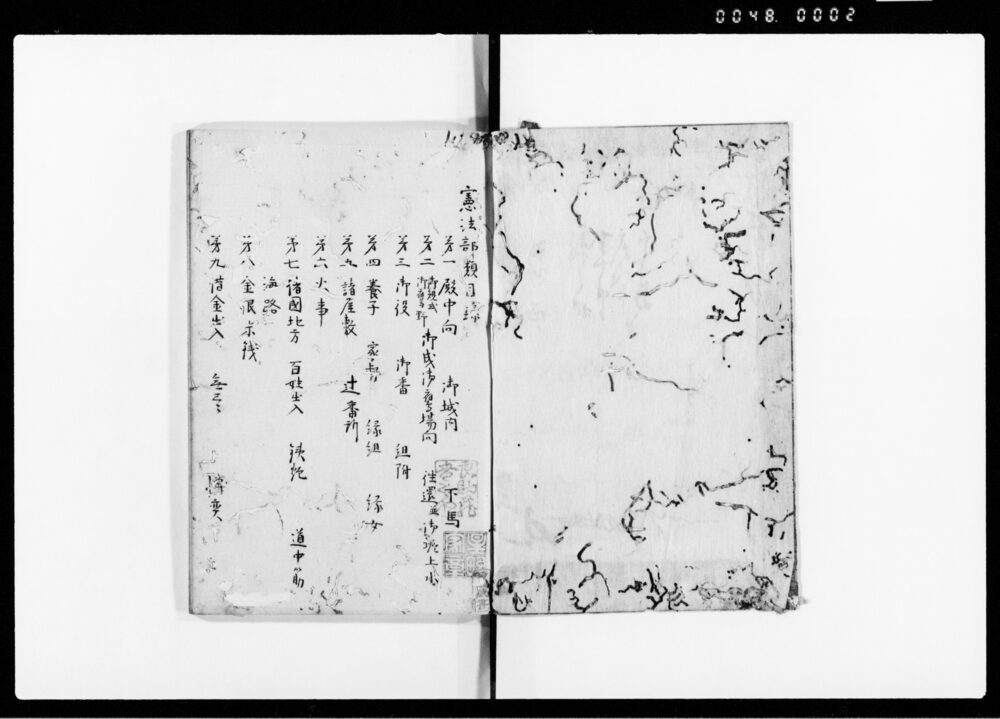 0048. 0002
憲法部類目録
第一 殿中向 御城内 下馬
第二 御成御鷹場向 往還並御堀上水
第三 御役 御番 組附
第四 養子 家督 縁組 縁女
第五 諸屋敷 辻番所
第六 火事
第七 諸國地方 百姓出入 鉄炮 道中筋
海路
第八 金銀米銭
第九 借金出入
博奕